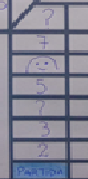 ?
7
5
7
3
2
PARTIDA